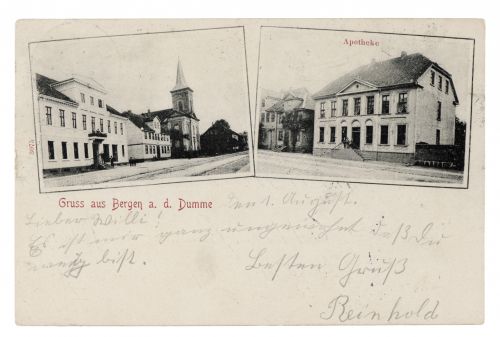 Apotheke
Gruss aus Bergen a. d. Dumme
den 1. August.
Lieber Willi!
Es ist mir ganz ungewohnt daß Du
weg bist.
Besten Gruß
Reinhold